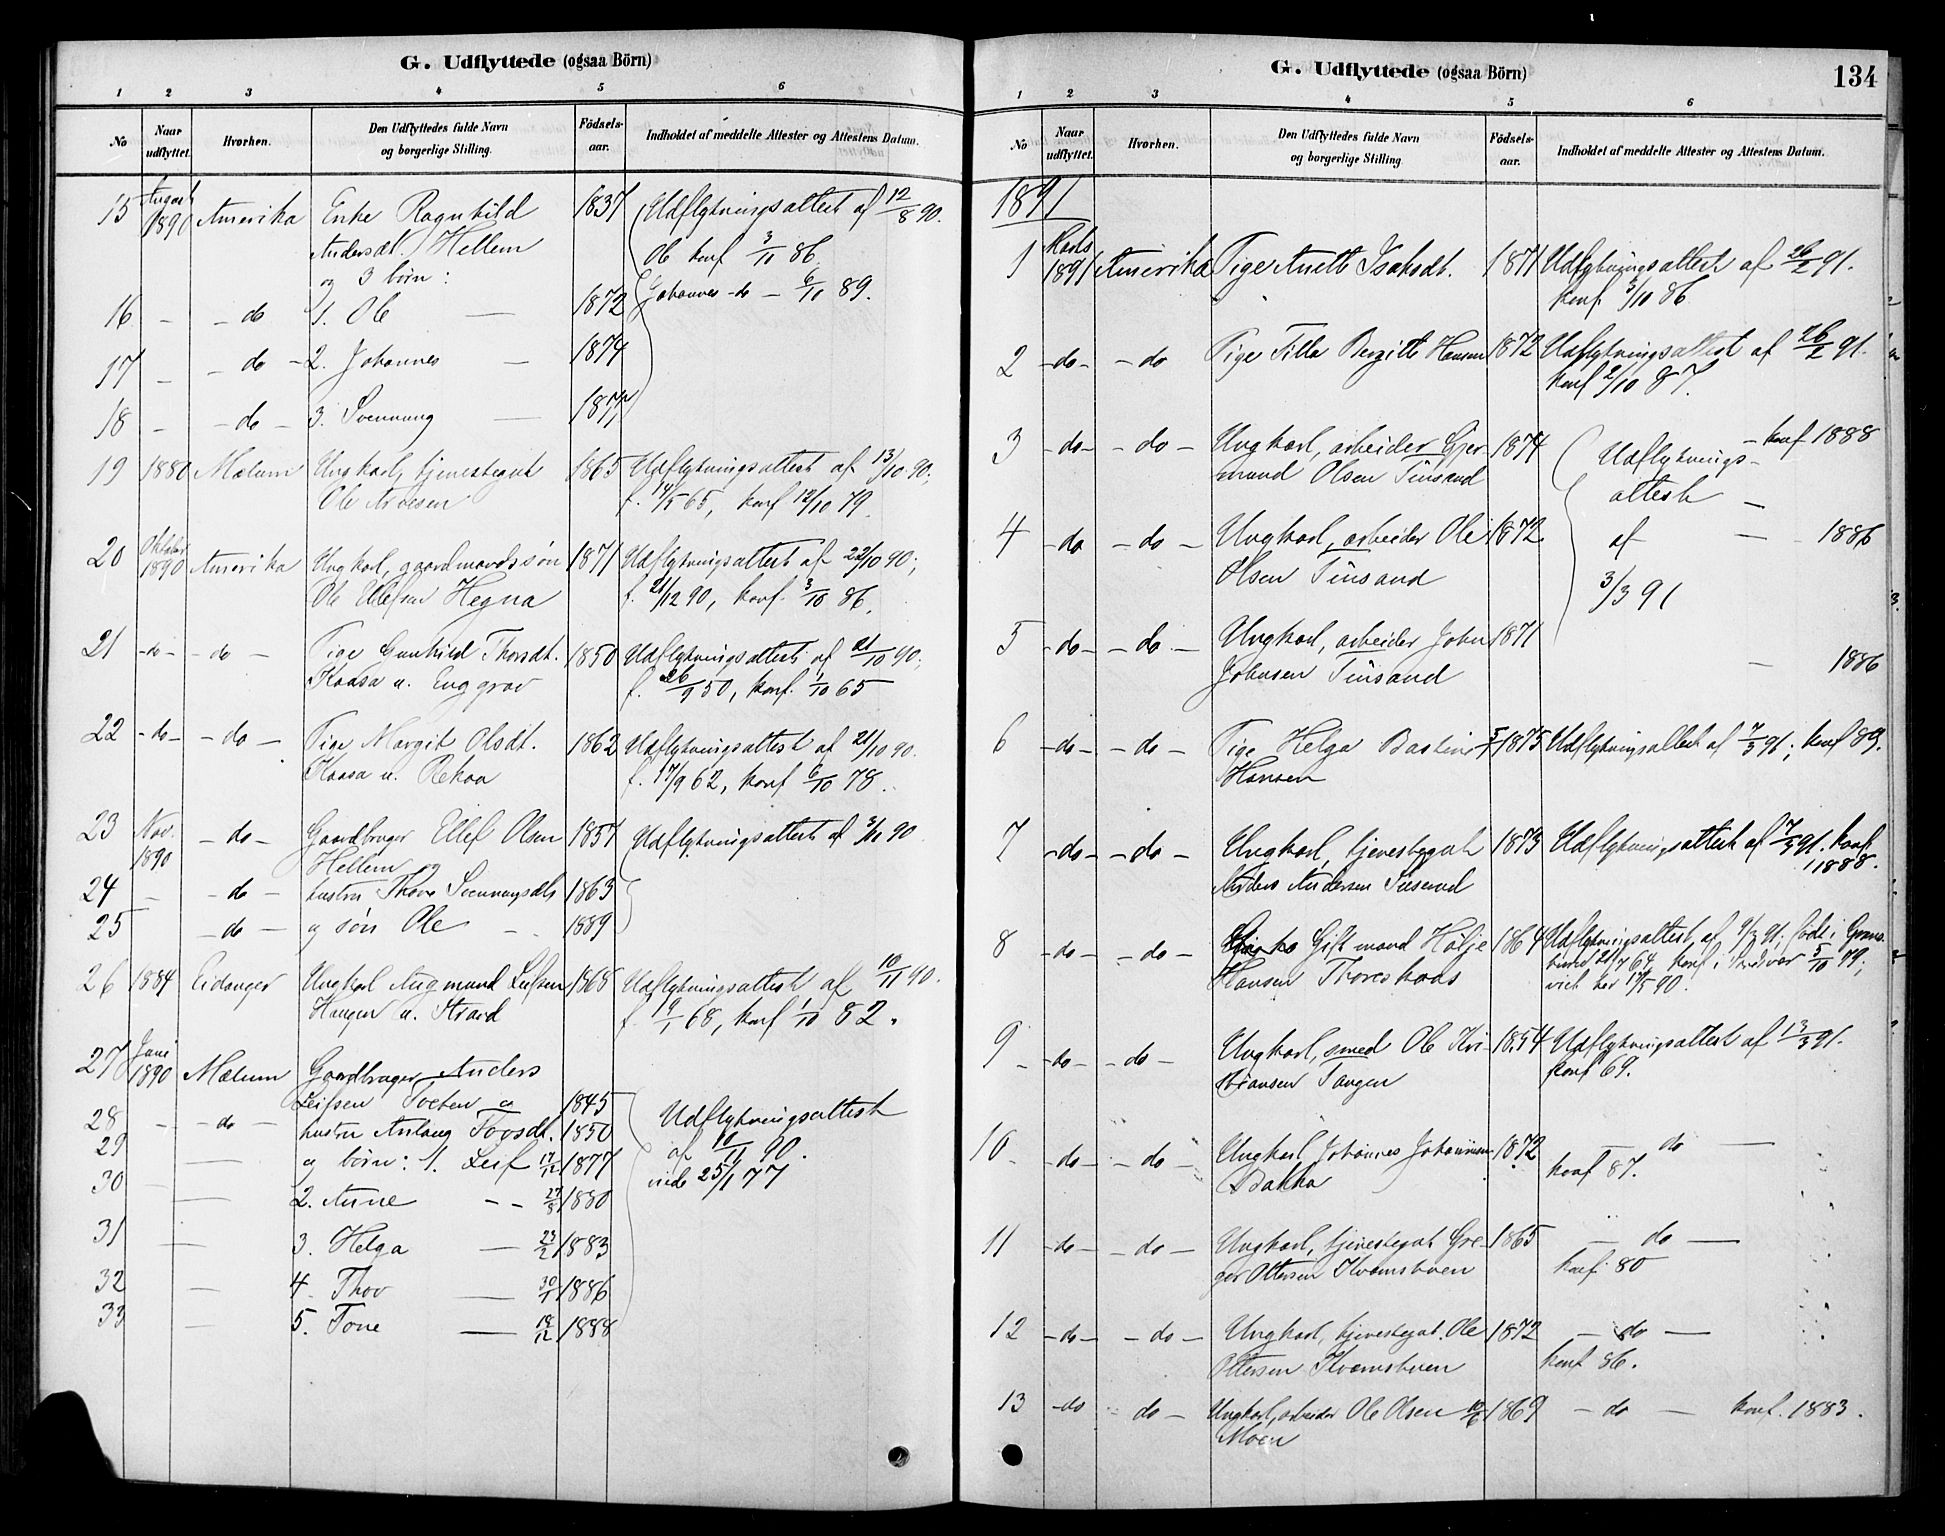 G. Udflyttede (ogsaa Börn)
1 2 3 4 5 6
No
Naar udflyttet.
Hvorhen.
Den Udflyttedes fulde Navn og borgerlige Stilling.
Födsels-aar.
Indholdet af meddelte Attester og Attestens Datum.
15 August 1890 Amerika Enke Ragnhild 1837 Udflytningsattest af 12/8 90.
Andersdt. Hellem Ole konf 3/10 86
og 3 börn: Johannes do — 6/10 89.
16 — — do 1. Ole — 1872
17 — — do — 2. Johannes — 1874
18 — — do — 3. Svennung — 1877
19 1880 Mælum Ungkarl, tjenestegut 1865 Udflytningsattest af 13/10 90;
Ole Arvesen f. 14/5 65, konf 12/10 79.
20 Oktober 1890 Amerika Ungkarl, gaardmandssøn 1871 Udflytningsattest af 22/10 90;
Ole Ellefsen Hegna f. 21/12 90, konf. 3/10 86.
21 -do- -do- Pige Gunhild Thorsdt. 1850 Udflytningsattest af 21/10 90;
Kaasa u. Enggrav f. 26/9 50, konf. 1/10 65
22 -do- -do- Pige Margit Olsdt. 1862 Udflytningsattest af 21/10 90.
Kaasa u. f. 17/9 62, konf 6/10 78.
23 Nov. 1890 -do- Gaardbruger Ellef Olsen 1857 Udflytningsattest af 3/11 90
Hellem og
24 — -do- hustru Thone Svennungsdt 1863
25 -do- og søn Ole — 1889
26 1884 Eidanger Ungkarl Augmund Leifsen 1868 Udflytningsattest af 10/11 90.
Haugen u. Strand f. 19/1 68, konf 1/10 82.
27 Juni 1890 Mælum Gaardbruger Anders
Leifsen Tveten og 1845 Udflytningsattest
28 — -do- hustru Aslaug Tovsdt. 1850 af 10/11 90.
29 — og börn: 1. Leif 17/12 1877 viede 25/1 77
30 — 2. Anne — 27/8 1880
31 — 3. Helga — 23/2 1883
32 — 4. Thov — 30/1 1886
33 — 5. Tone — 18/12 1888
G. Udflyttede (ogsaa Börn)
134
1 2 3 4 5 6
No
Naar udflyttet.
Hvorhen.
Den Udflyttedes fulde Navn og borgerlige Stilling.
Födsels-aar.
Indholdet af meddelte Attester og Attestens Datum.
1891
1 Marts 1891 Amerika Pige Anette Isaksdt. 1871 Udflytningsattest af 26/2 91.
konf. 3/10 86
2 -do- -do Pige Tilla Bergitte Hansen 1872 Udflytningsattest af 26/2 91.
konf 2/10 87.
3 -do- -do- Ungkarl, arbeider Gjer- 1874 Udflytnings- — konf 1888
mund Olsen Tinsand attest —
4 -do -do- Ungkarl, arbeider Ole 1872 af — 1886
Olsen Tinsand 3/3 91
5 -do- -do- Ungkarl, arbeider John 1871
Johnsen Tinsand — 1886
6 -do- -do- Pige Helga Bastine 1875 Udflytningsattest af 7/3 91; konf 89.
Hansen
7 -do- -do- Ungkarl, tjenestegut 1873 Udflytningsattest af 7/3 91. konf
Anders Andersen 1888.
8 -do- -do- Gift mand Hølje 1864 Udflytningsattest af 9/3 91; født i
Hansen 64 konf i 5/10 79;
viet her 17/5 90.
9 -do- -do- Ungkarl, smed Ole Kri- 1854 Udflytningsattest af 13/3 91.
stiansen Tangen konf 69.
10 -do- -do- Ungkarl Johannes Johannesen 1872 — do —
Bakka konf 87.
11 -do- -do- Ungkarl, tjenestegut Gre- 1865 — do —
ger Ottersen konf. 80
12 -do- -do- Ungkarl, tjenestegut Ole 1872 — do —
Ottersen konf 86.
13 -do do- Ungkarl, arbeider Ole Olsen 1869 — do — konf. 1883.
Moen